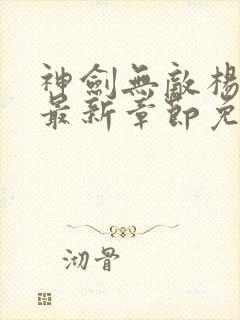 神劍無敵楊
最新章節免
沏骨